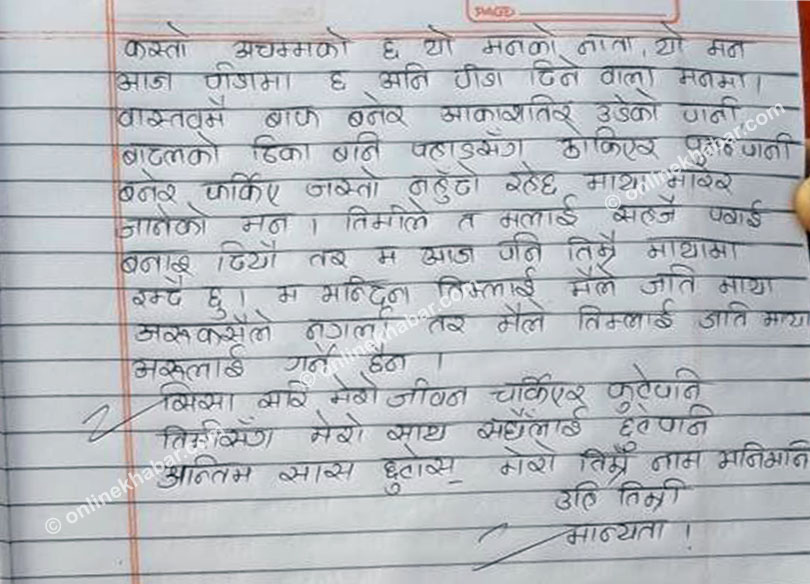 PAGE
कस्तो अचम्मको छ यो मनको नाता, यो मन
आज पीडामा छ अनि पीडा दिने वाला मनमा।
वास्तवमै बाफ बनेर आकाशतिर उडेको पानी
बादलको ढिका बनि पहाडसँग ठोकिएर पानी
बनेर फर्किए जस्तो नहुँदो रहेछ माया मारेर
जानेको मन। तिमीले त मलाई सहजै पराई
बनाइ दियौ तर म आज पनि तिम्रै मायामा
रम्दै छु। म भन्दिन तिम्लाई मैले जति माया
अरुकसैले नगर्ला तर मैले तिम्लाई जति माया
अरूलाई गर्ने हैन।
सिसा सरि मेरो जीवन चर्किएर फुटेपनि
तिमीसँग मेरो साथ सधैँलाई छुटेपनि
अन्तिम सास छुटोस् मेरो तिम्रै नाम भनिभनि
उहि तिम्री
मान्यता!
© onlinekhabar.com
© onlinekhabar.com
© onlinekhabar.com
© onlinekhabar.com